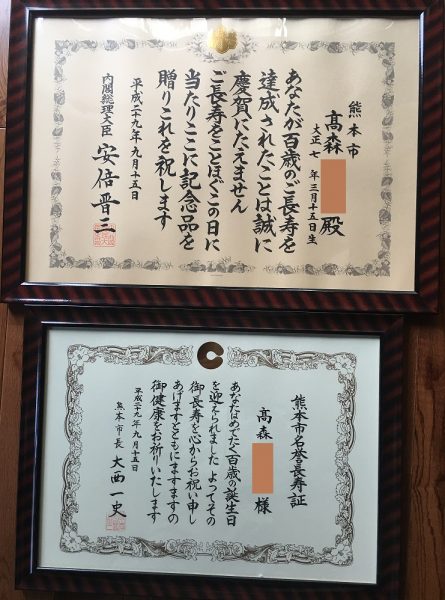 熊本市
髙森 殿
大正 七 年三月十五日生
あなたが百歳のご長寿を
達成されたことは誠に
慶賀にたえません
ご長寿をことほぐこの日に
当たりここに記念品を
贈りこれを祝します
平成二十九年九月十五日
内閣総理大臣 安倍晋三
熊本市名誉長寿証
髙森 様
あなたはめでたく百歳の誕生日
を迎えられました よってその
御長寿を心からお祝い申し
あげますとともにますますの
御健康をお祈りいたします
平成二十九年九月十五日
熊本市長 大西一史